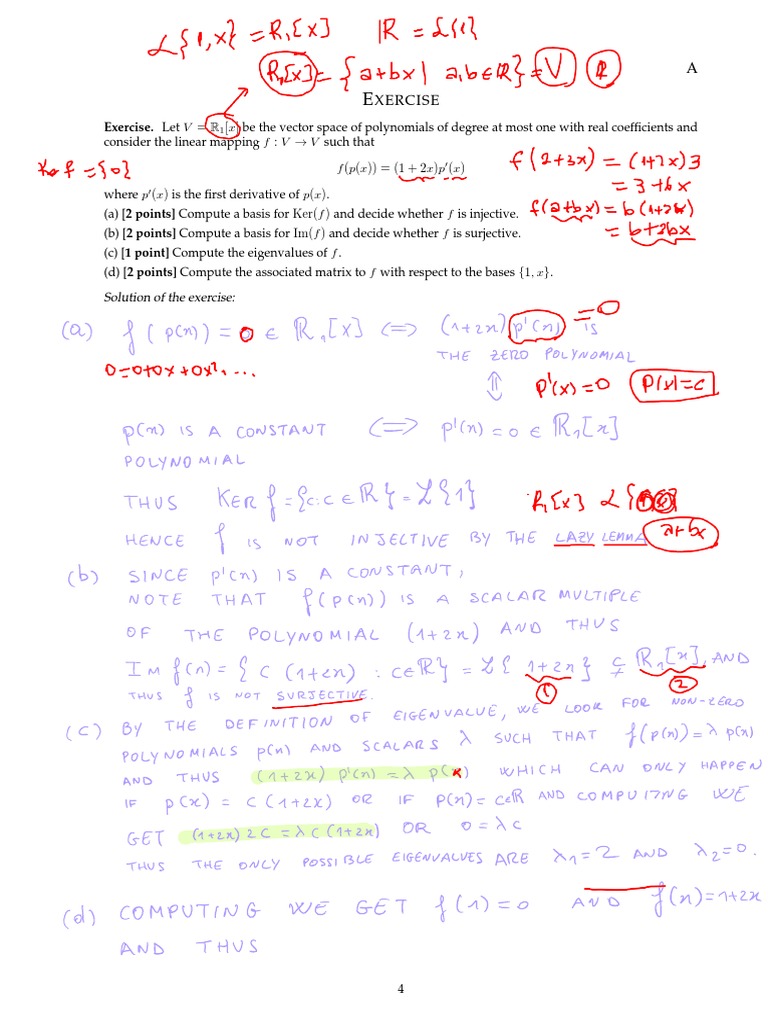 L{1,x} = R₁[x]   |R = L{1}
R₁[x] = {a+bx | a,b ∈ R} = V   R
A
EXERCISE
Exercise. Let V = ℝ₁[x] be the vector space of polynomials of degree at most one with real coefficients and
consider the linear mapping f : V → V such that
Ker f = {0}
f(p(x)) = (1 + 2x)p′(x)
f(2+3x) = (1+2x)3
= 3+6x
where p′(x) is the first derivative of p(x).
(a) [2 points] Compute a basis for Ker(f) and decide whether f is injective.
f(a+bx) = b(1+2x)
(b) [2 points] Compute a basis for Im(f) and decide whether f is surjective.
= b+2bx
(c) [1 point] Compute the eigenvalues of f.
(d) [2 points] Compute the associated matrix to f with respect to the bases {1, x}.
Solution of the exercise:
(a) f(p(x)) = 0 ∈ R₁[x] <=> (1+2x) p'(x) = 0 IS
THE ZERO POLYNOMIAL
0=0+0x+0x²+...
⇕ P'(x)=0 P(x)=c
p(x) IS A CONSTANT <=> p'(x) = 0 ∈ R₁[x]
POLYNOMIAL
THUS KER f = {c: c ∈ R} = L{1}
R₁[x] L{1,x}
HENCE f IS NOT INJECTIVE BY THE LAZY LEMMA
a+bx
(b) SINCE p'(x) IS A CONSTANT,
NOTE THAT f(p(x)) IS A SCALAR MULTIPLE
OF THE POLYNOMIAL (1+2x) AND THUS
IM f(x) = {c (1+2x) : c∈R} = L{1+2x} ⊊ R₁[x], AND
1 2
THUS f IS NOT SURJECTIVE.
(C) BY THE DEFINITION OF EIGENVALUE, WE LOOK FOR NON-ZERO
POLYNOMIALS p(x) AND SCALARS λ SUCH THAT f(p(x)) = λ p(x)
AND THUS (1+2x) p'(x) = λ p(x) WHICH CAN ONLY HAPPEN
IF p(x) = c(1+2x) OR IF p(x) = c∈R AND COMPUTING WE
GET (1+2x) 2c = λ c (1+2x) OR 0 = λc
THUS THE ONLY POSSIBLE EIGENVALUES ARE λ₁=2 AND λ₂=0.
(d) COMPUTING WE GET f(1)=0 AND f(x)=1+2x
AND THUS
4